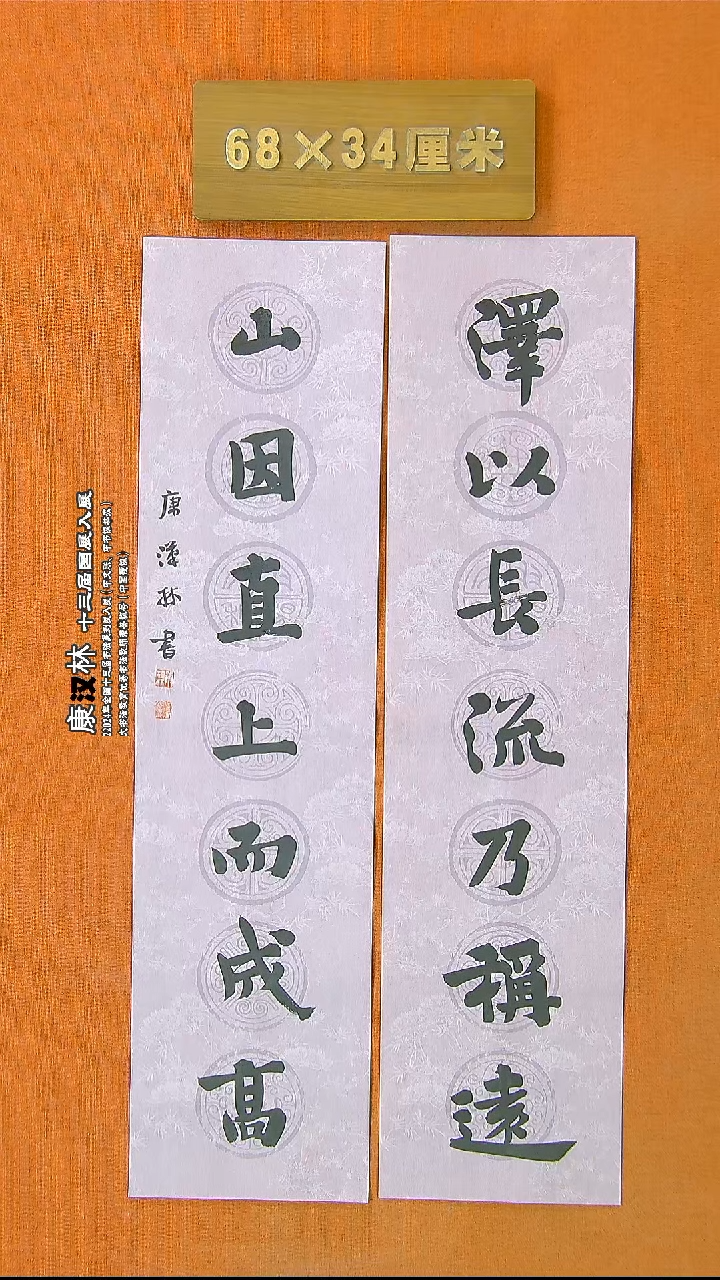 68×34厘米
澤以長流乃稱遠
山因直上而成高
康漢林書
康汉林 十三届国展入展